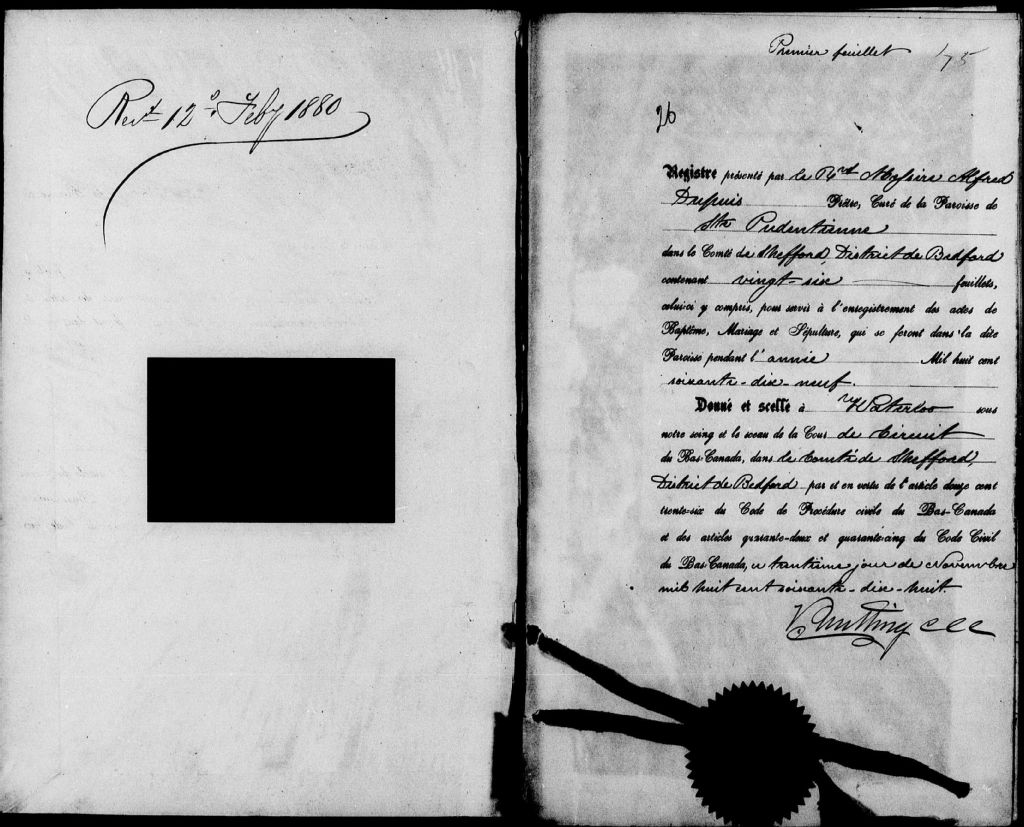 Recd 12o. Feby 1880
Premier feuillet
26
Registre présenté par le Rvrd Messire Alfred
Dupuis Prêtre, Curé de la Paroisse de
Ste Pudentienne
dans le Comté de Shefford, District de Bedford
contenant vingt-six feuillets,
celui-ci y compris, pour servir à l'enregistrement des actes de
Baptême, Mariage et Sépulture, qui se feront dans la dite
Paroisse pendant l'année Mil huit cent
soixante-dix-neuf.
Donné et scellé à Waterloo sous
notre seing et le sceau de la Cour de Circuit
du Bas-Canada, dans le Comté de Shefford,
District de Bedford par et en vertu de l'article douze cent
trente-six du Code de Procédure civile du Bas-Canada
et des articles quarante-deux et quarante-cinq du Code Civil
du Bas-Canada, ce trentième jour de Novembre
mil huit cent soixante-dix-huit.
Nutting CCC